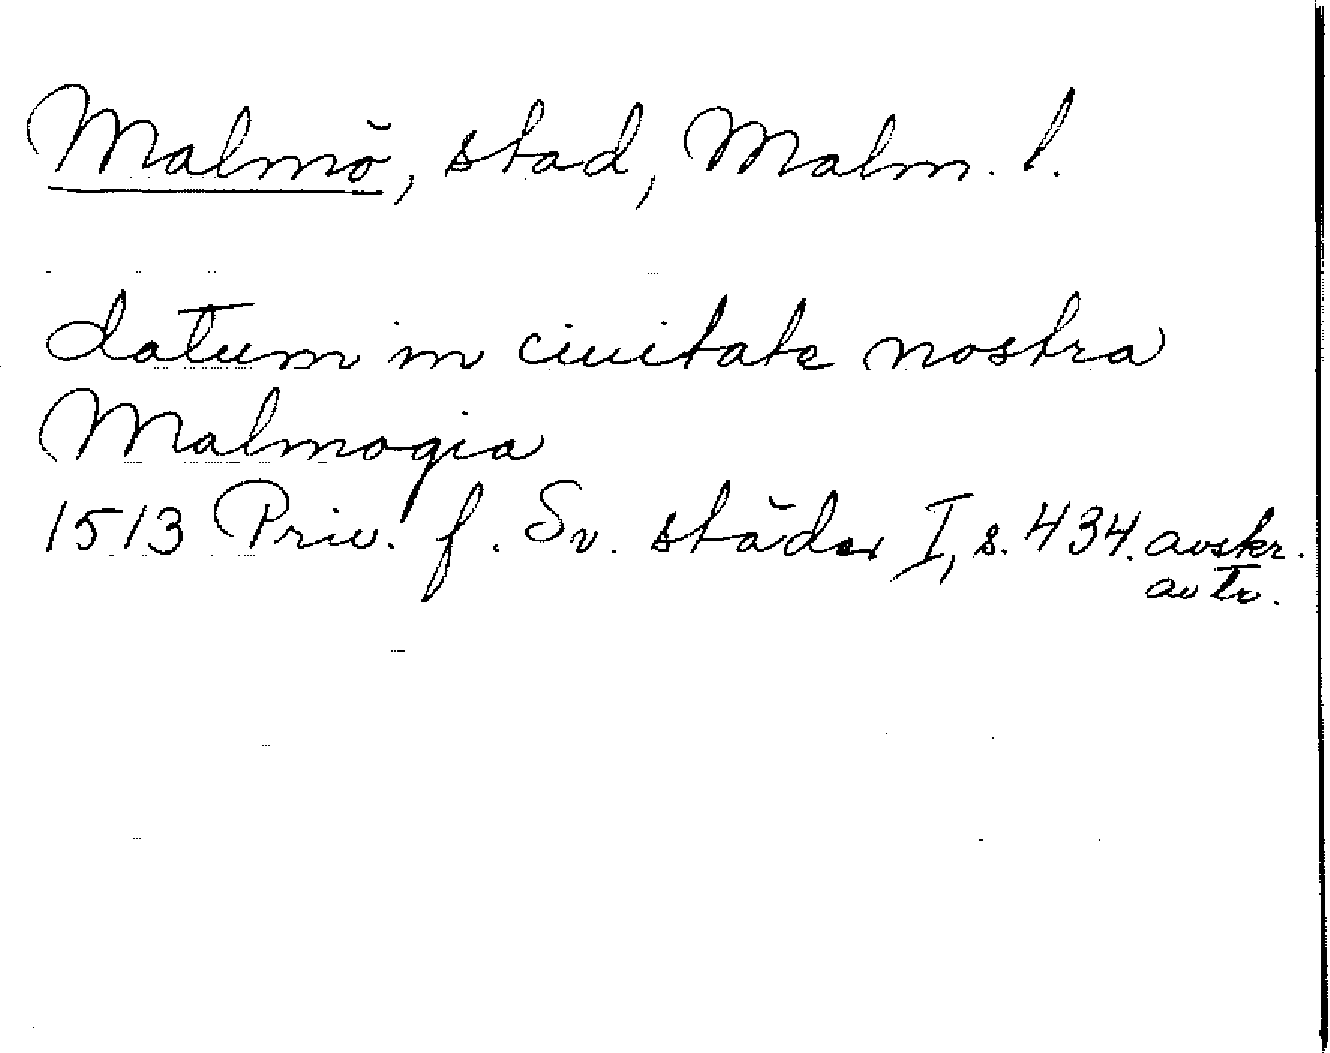 Malmö, stad, Malm. l.
datum in ciuitate nostra
Malmogia
1513 Priv. f. Sv. städer I, s. 434. avskr.
av tr.